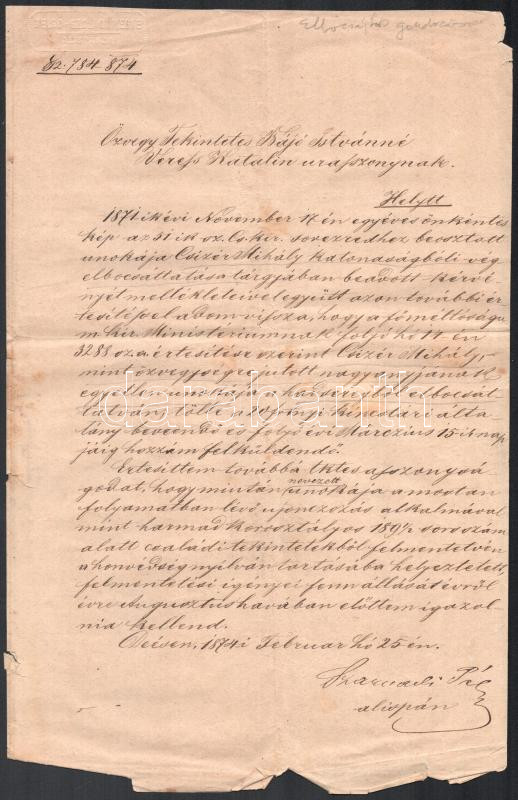 Elbocsájtás
Sz: 784 874
Özvegy Tekintetes Bájó Istvánné
Veress Katalin uraszonynak.
Helytt
1871 ik évi November 17 én egyéves önkéntes
kép az 51 ik sz. cs. kir. sorezredhez besoztott
unokája Csizér Mihály katonaságbóli vég
elbocsáttatása tárgyában beadott kérvé
nyét mellékleteivel együtt azon további ér
tesitéssel adom vissza, hogy a főméltóságu
m. kir. Ministériumnak folyó hó 14 én
3288 sz. a. értesitése szerint Csizér Mihály,-
mint özvegységre jutott nagyanyjának
egyetlen unokája a hadseregből elbocsát
tatván, tőlle az önkénytesi
tány bevendő és folyó évi Márczius 15-ik nap
jáig hozzám felküldendő.
Értesittem továbbá tktes aszonysá
godat, hogy miután nevezett unokája a mostan
folyamatban lévő ujonczozás alkalmával
mint harmad korosztályos 189 1/2 sorsszám
alatt családi tekintetekből felmentetvén
a honvédség nyilván tartásába helyeztetett
felmentetési igényei fennállását évről
évre Augusztus havában előttem igazol
nia kellend.
Deésen, 1874 i Februar hó 25 én.
Szarvadi Pál
alispán
darabanth